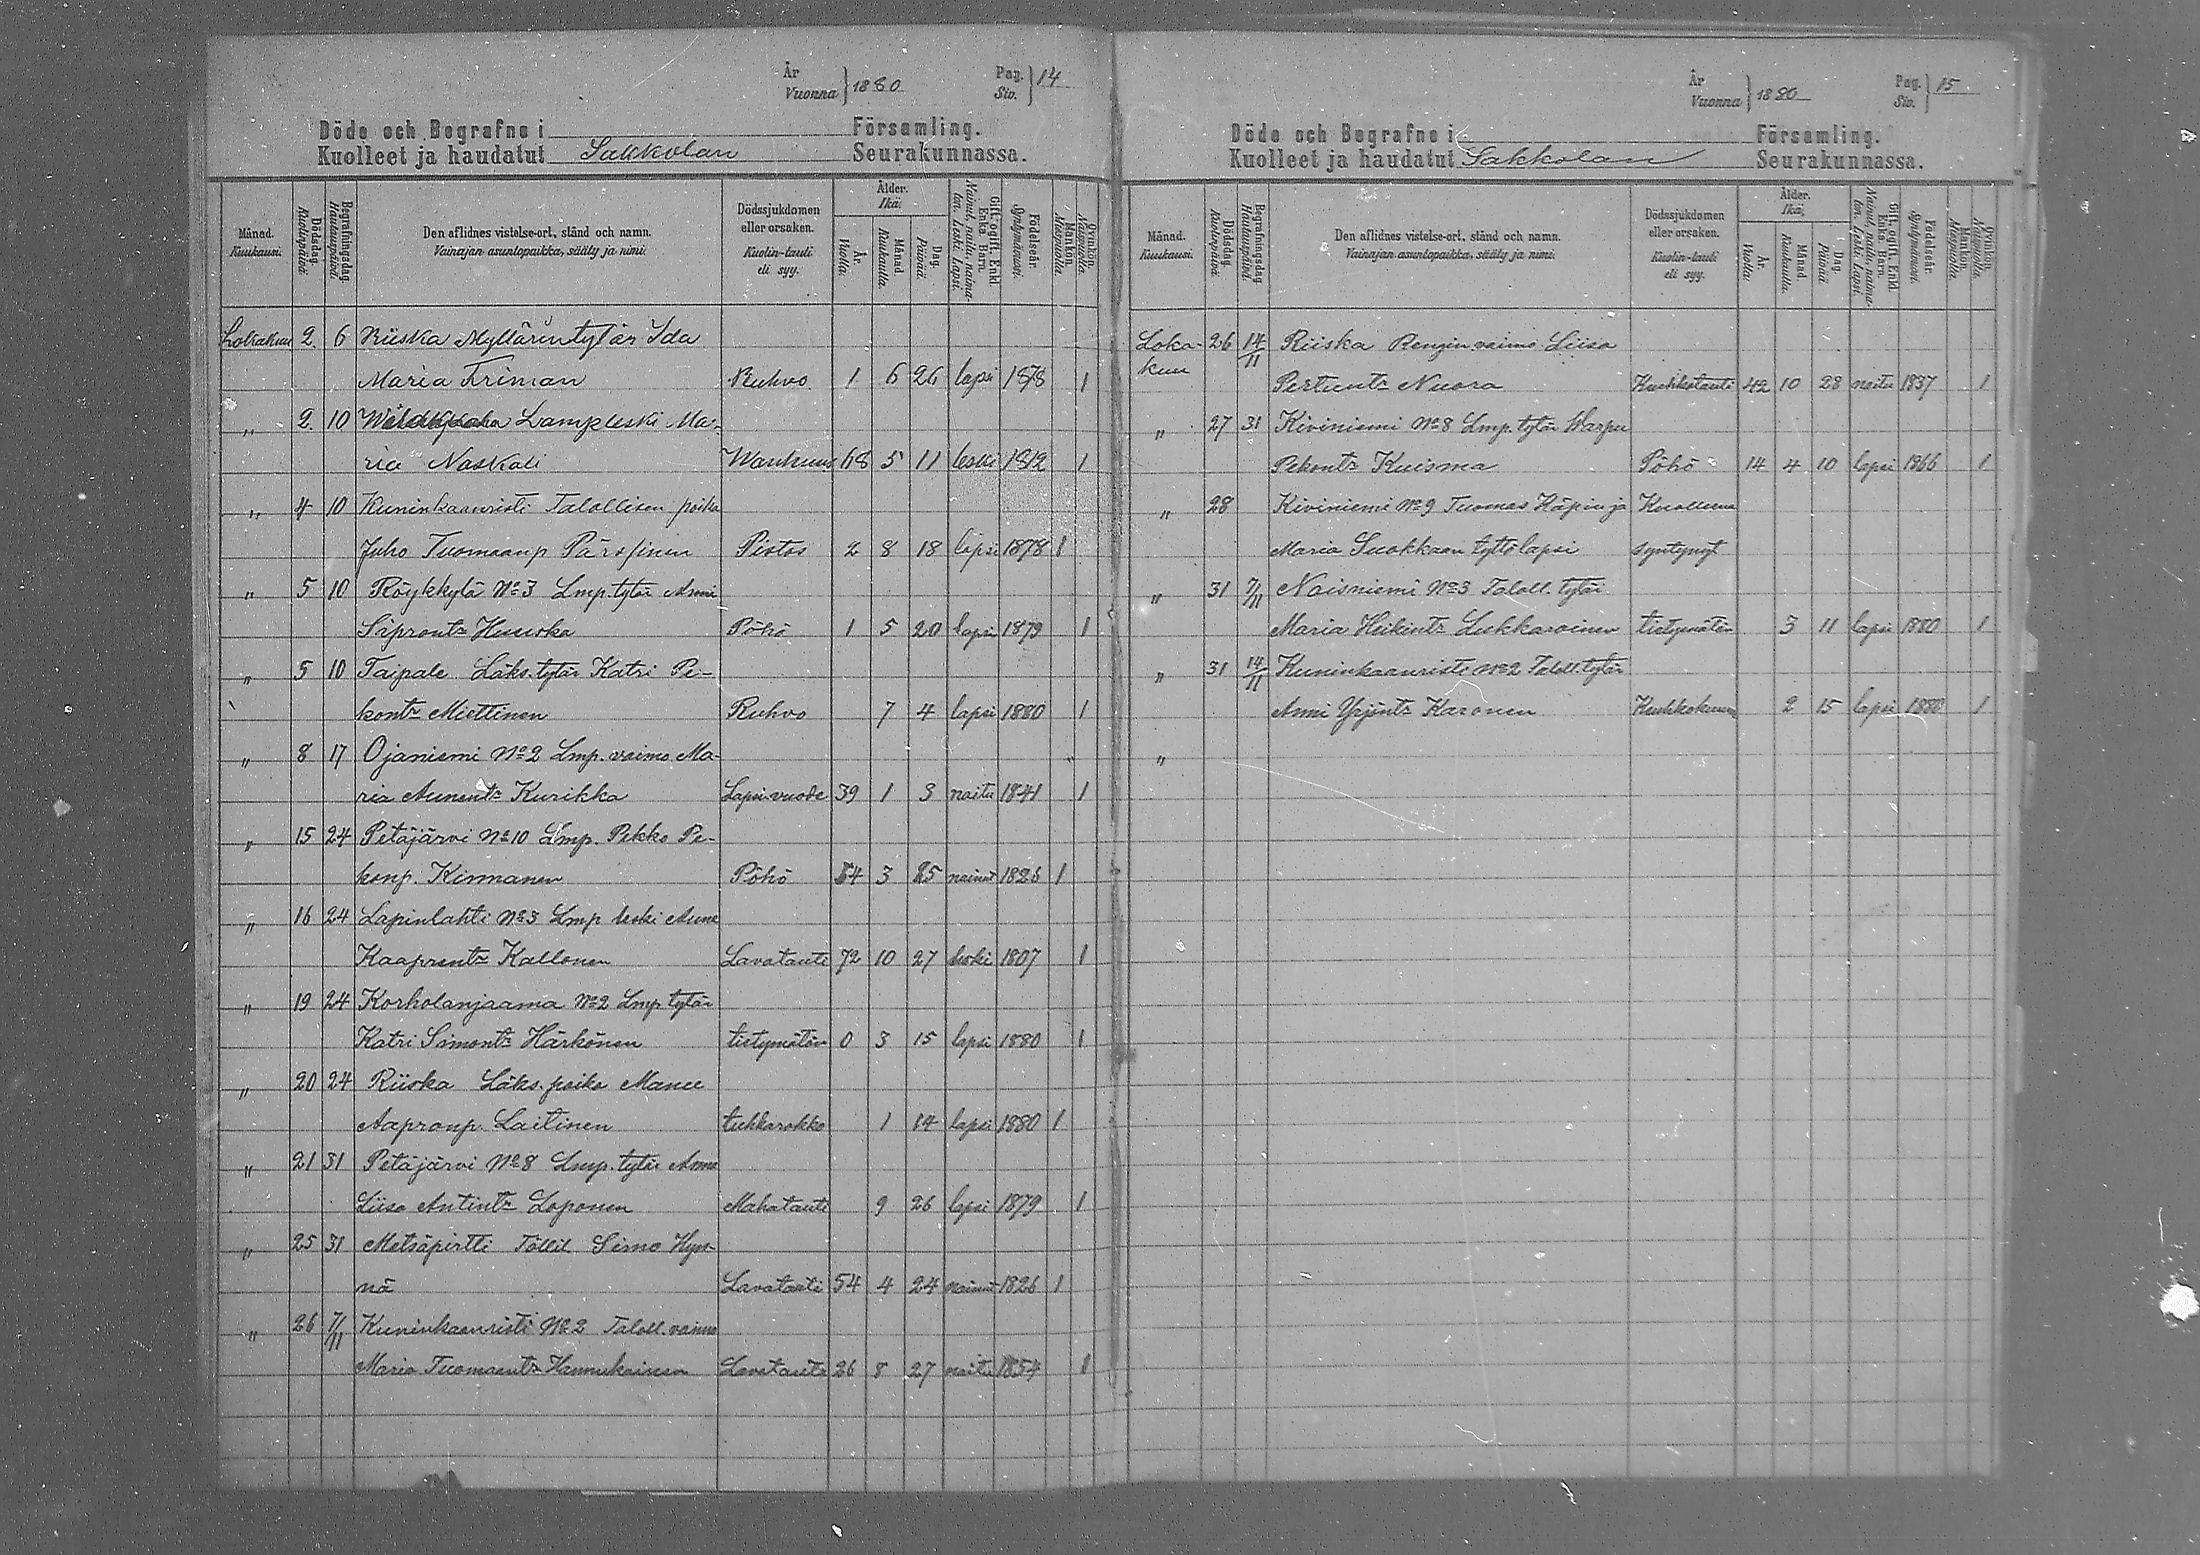 År
Vuonna } 1880 Pag. Siv. } 14
Döde och Begrafne i Församling.
Kuolleet ja haudatut Sakkolan Seurakunnassa.
Månad. Kuukausi. Dödsdag. Kuolinpäivä. Begrafningsdag. Hautauspäivä. Den aflidnes vistelse-ort, stånd och namn. Vainajan asuntopaikka, sääty ja nimi. Dödssjukdomen eller orsaken. Kuolin-tauti eli syy. Ålder. Ikä. År. Vuotta. Månad. Kuukautta. Dag. Päivää. Gift, ogift, Enkl. Enka, Barn. Nainut, naitu, naimaton, Leski, Lapsi. Födelseår. Syntymävuosi. Mankön. Miespuolia. Qvinkön. Naispuolia.
Lokakuu 2. 6 Riiska Myllärin tytär Ida
Maria Friman Ruhvo 1 6 26 lapsi 1878 1
„ 2. 10 Lampleski Ma-
ria Naskali Wanhuus 68 5 11 leski 1812 1
„ 4 10 Kuninkaanristi Talollisen poika
Juho Tuomaanp Pärssinen Pistos 2 8 18 lapsi 1878 1
„ 5 10 Röykkylä No 3 Lmp. tytär Anni
Siprontr Huuska Pöhö 1 5 20 lapsi 1879 1
„ 5 10 Taipale Läks. tytär Katri Pe-
kontr Miettinen Ruhvo 7 4 lapsi 1880 1
„ 8 17 Ojaniemi No 2 Lmp. vaimo Ma-
ria Aunentr Kurikka Lapsivuode 39 1 3 naitu 1841 1
„ 15 24 Petäjärvi No 10 Lmp. Pekko Pe-
konp. Kinnanen Pöhö 54 3 25 nainut 1826 1
„ 16 24 Lapinlahti No 3 Lmp leski Anna
Kaaprentr Kallonen Lavatauti 72 10 27 leski 1807 1
„ 19 24 Korholanjaama No 2 Lmp tytär
Katri Simontr Härkönen tietymätön 0 3 15 lapsi 1880 1
„ 20 24 Riiska Läks. poika Manee
Aapronp. Laitinen tuhkarokko 1 14 lapsi 1880 1
„ 21 31 Petäjärvi No 8 Lmp. tytär Anna
Liisa Antintr Loponen Mahatauti 9 26 lapsi 1879 1
„ 25 31 Metsäpirtti Töllil. Simo Hyn-
nä Lavatauti 54 4 24 nainut 1826 1
„ 26 7/11 Kuninkaanristi No 2 Taloll. vaimo
Maria Tuomaantr Hannukainen Lavatauti 26 8 27 naitu 1854 1
År
Vuonna } 1880 Pag. Siv. } 15
Döde och Begrafne i Församling.
Kuolleet ja haudatut Sakkolan Seurakunnassa.
Månad. Kuukausi. Dödsdag. Kuolinpäivä. Begrafningsdag. Hautauspäivä. Den aflidnes vistelse-ort, stånd och namn. Vainajan asuntopaikka, sääty ja nimi. Dödssjukdomen eller orsaken. Kuolin-tauti eli syy. Ålder. Ikä. År. Vuotta. Månad. Kuukautta. Dag. Päivää. Gift, ogift, Enkl. Enka, Barn. Nainut, naitu, naimaton, Leski, Lapsi. Födelseår. Syntymävuosi. Mankön. Miespuolia. Qvinkön. Naispuolia.
Loka- 26 14/11 Riiska Rengin vaimo Liisa
kuu Pertuntr Nuora Keuhkotauti 42 10 28 naitu 1837 1
„ 27 31 Kiviniemi No 8 Lmp. tytär Warpu
Pekontr Kuisma Pöhö 14 4 10 lapsi 1866 1
„ 28 Kiviniemi No 9 Tuomas Häpin ja Kuolleena
Maria Suokkaan tyttölapsi syntynyt
„ 31 7/11 Naisniemi No 3 Taloll. tytär
Maria Heikintr Lukkaroinen tietymätön 3 11 lapsi 1880 1
„ 31 14/11 Kuninkaanristi No 2 Taloll. tytär
Anni Yrjöntr Karonen 2 15 lapsi 1880 1
„